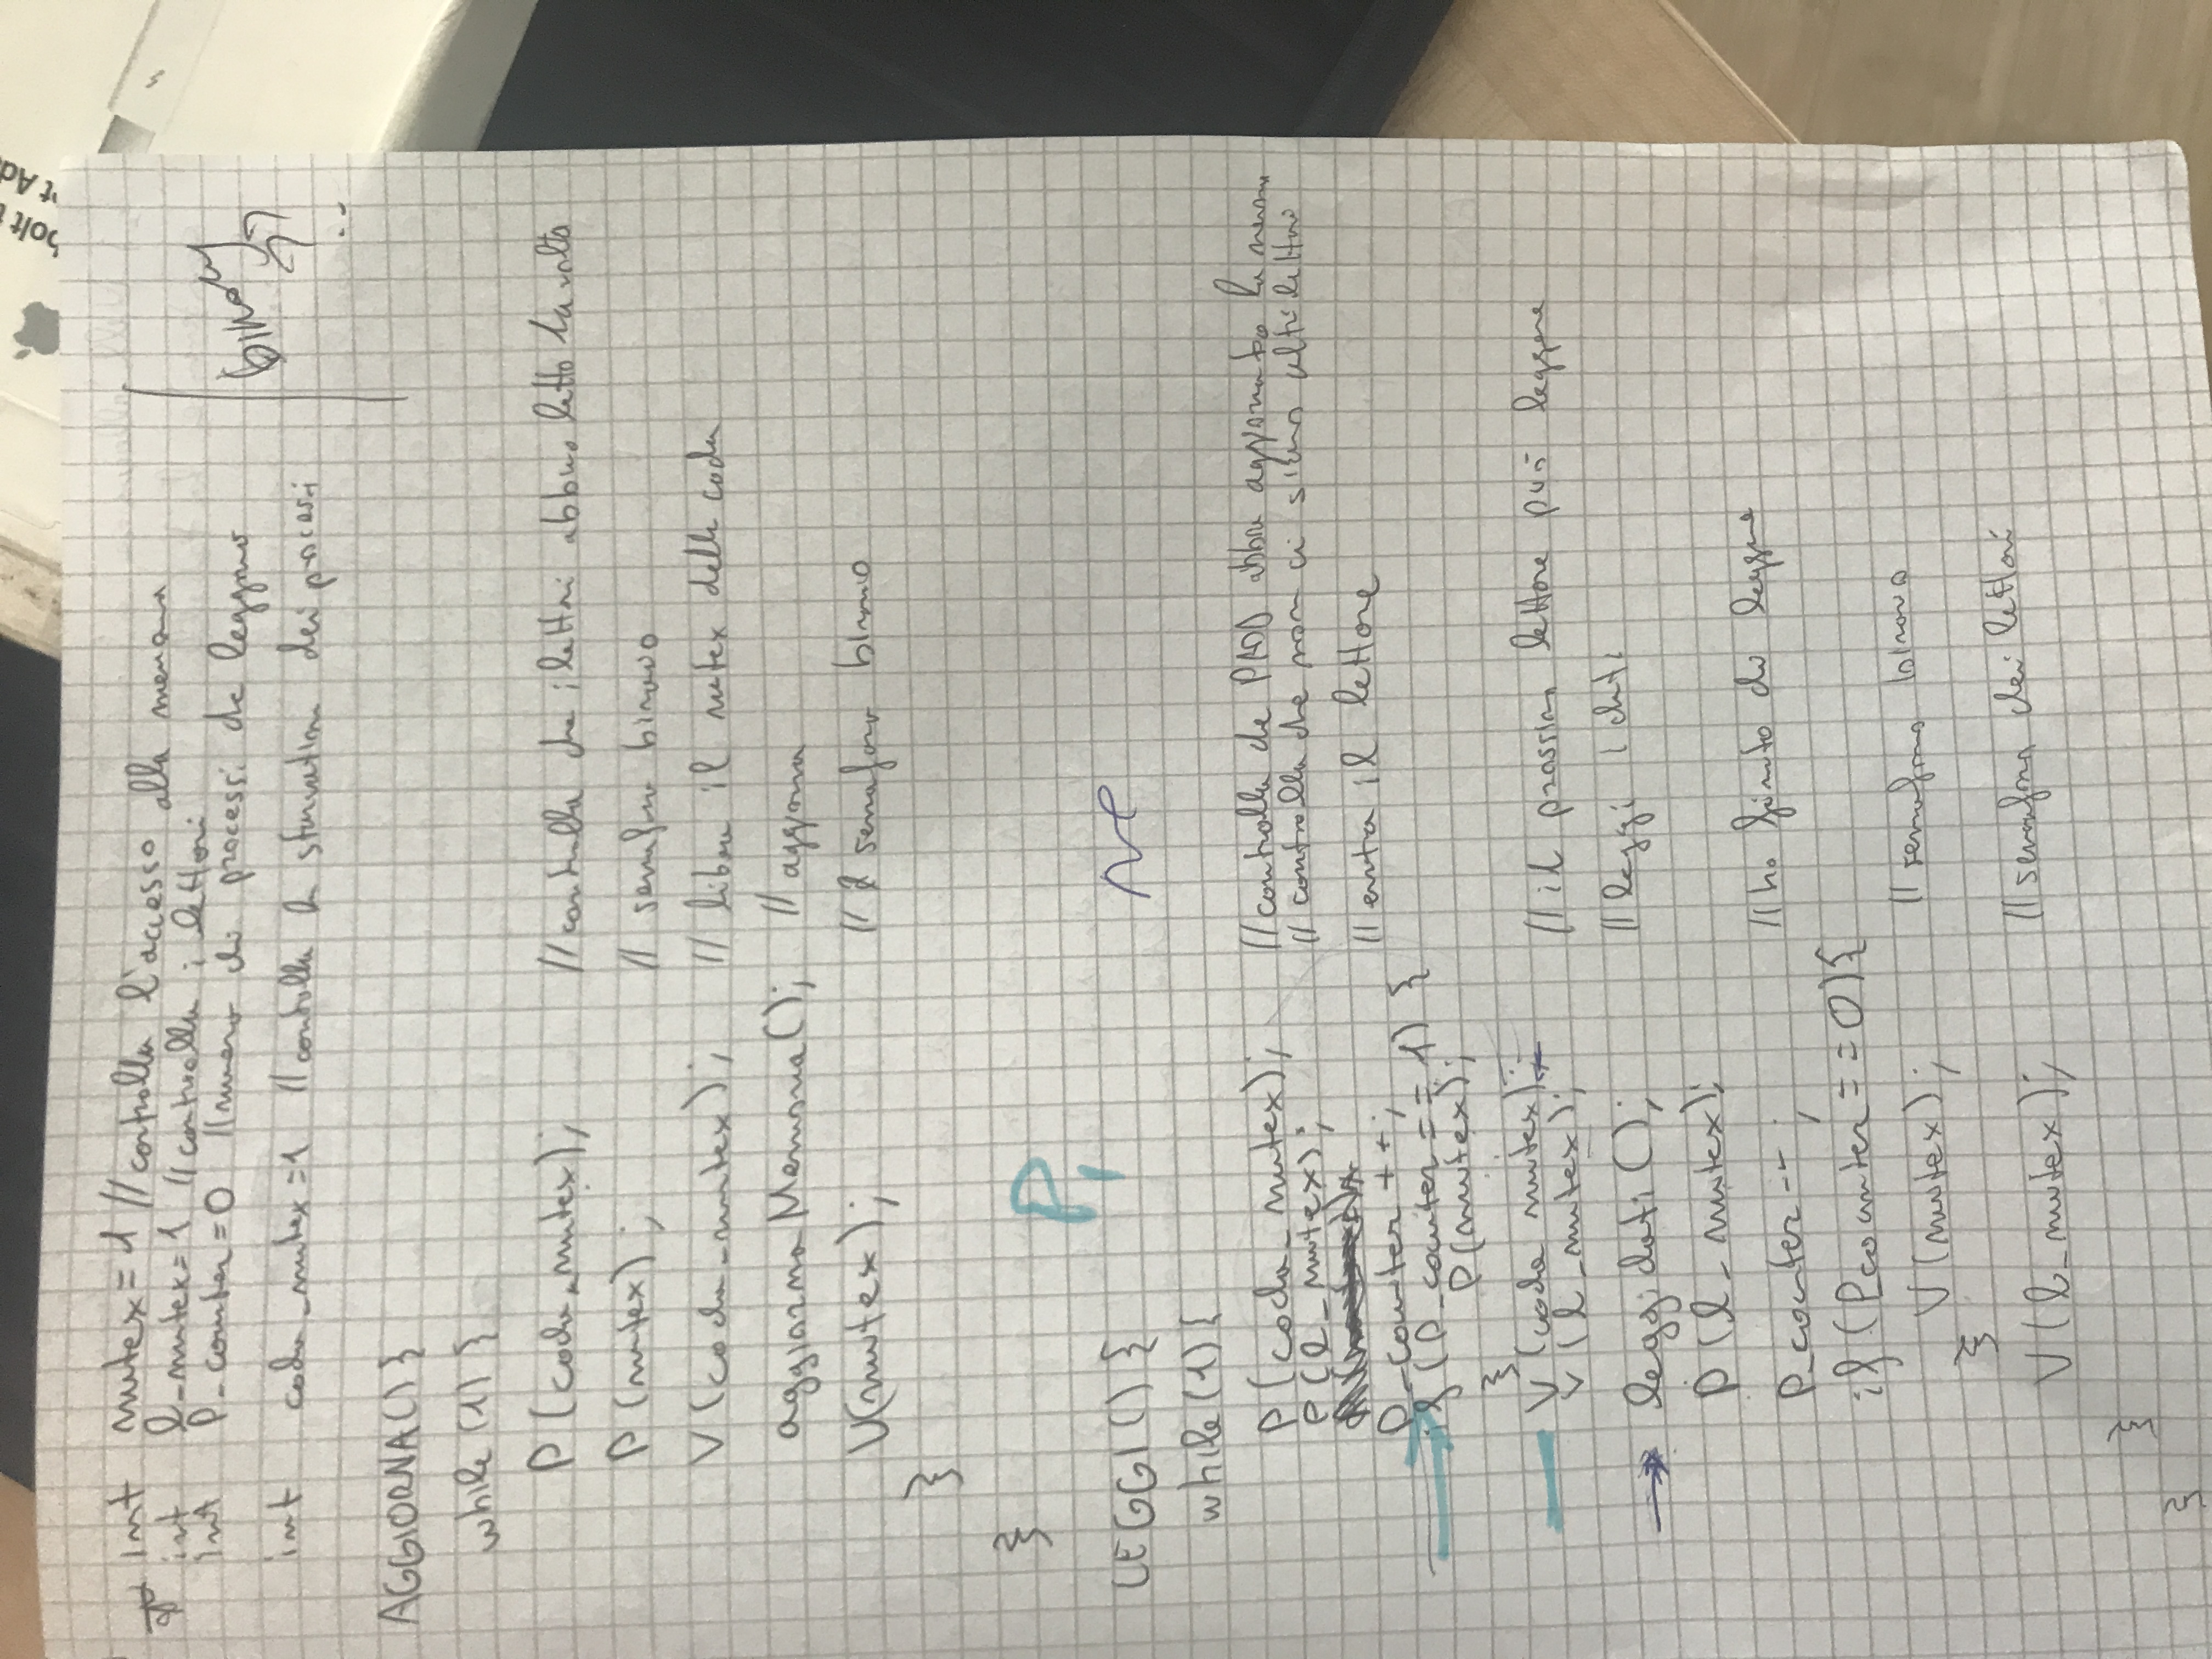 bolt t
't Ad
int mutex = 1 // controlla l'accesso alla memoria
int l_mutex = 1 // controlla i lettori
int P_counter = 0 // numero di processi che leggono
int coda_mutex = 1 // controlla la starvation dei processi
binary
??
AGGIORNA() {
while (1) {
P (coda_mutex); // controlla che i lettori abbiano letto 1a volta
P (mutex); // semaforo binario
V (coda_mutex); // libera il mutex della coda
aggiornaMemoria(); // aggiorna
V(mutex); // semaforo binario
}
}
P1
LEGGI() {
while (1) {
P (coda_mutex); // controlla che abbia aggiornato la memoria
P (l_mutex); // controlla che non ci siano altri lettori
P_counter ++; // entra il lettore
if (P_counter == 1) {
P(mutex);
}
V (coda mutex);
V (l_mutex); // il prossimo lettore può leggere
leggidati (); // leggi i dati
P (l_mutex);
P_counter --; // ho finito di leggere
if (Pcounter == 0) {
V (mutex); // semaforo binario
}
V (l_mutex); // semaforo dei lettori
}
}